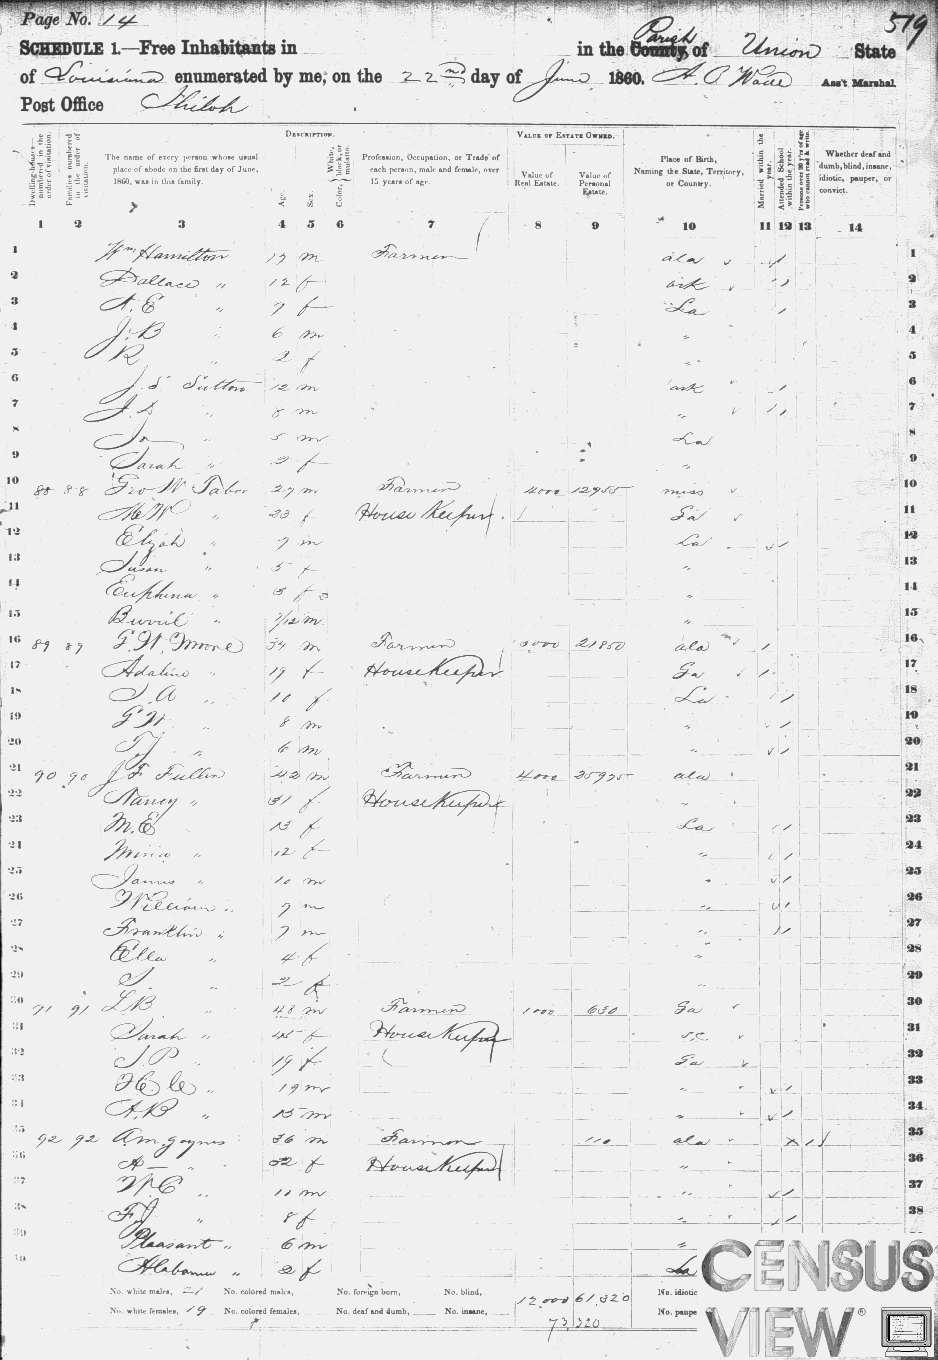 Page No. 14
519
SCHEDULE 1.—Free Inhabitants in in the County Parish of Union State
of Louisiana enumerated by me, on the 22nd day of June 1860. Ass't Marshal.
Post Office Shiloh
Dwelling-houses—numbered in the order of visitation.
Families numbered in the order of visitation.
The name of every person whose usual place of abode on the first day of June, 1860, was in this family.
DESCRIPTION.
Age.
Sex.
Color, White, black, or mulatto.
Profession, Occupation, or Trade of each person, male and female, over 15 years of age.
VALUE OF ESTATE OWNED.
Value of Real Estate.
Value of Personal Estate.
Place of Birth, Naming the State, Territory, or Country.
Married within the year.
Attended School within the year.
Persons over 20 y'rs of age who cannot read & write.
Whether deaf and dumb, blind, insane, idiotic, pauper, or convict.
1 2 3 4 5 6 7 8 9 10 11 12 13 14
1 Wm Hamilton m Farmer ala 1
2 Dallace " 12 f ark 2
3 " 7 f La 3
4 J. B " 6 m " 4
5 R 2 f " 5
6 J. S Sutton 12 m ark 6
7 " 8 m " 7
8 " 5 m La 8
9 Sarah " 2 f " 9
10 88 88 Geo W Tabor 27 m Farmer 4000 12955 miss 10
11 " 23 f House Keeper Ga 11
12 Elijah " 7 m La 12
13 Susan " 5 f " 13
14 Euphina " 3 f " 14
15 " /12 m " 15
16 89 89 G. W. Moore 34 m Farmer 3000 21850 ala 16
17 Adaline " 19 f House Keeper Ga 17
18 S. A " 10 f La 18
19 G W " 8 m " 19
20 " 6 m " 20
21 90 90 J F Fuller 42 m Farmer 4000 25975 ala 21
22 Nancy " 31 f House Keeper " 22
23 M. E 13 f La 23
24 " 12 f " 24
25 James " 10 m " 25
26 William " 9 m " 26
27 Franklin " 7 m " 27
28 Ella " 4 f " 28
29 S. 2 f 29
30 91 91 L B " 48 m Farmer 1000 630 Ga 30
31 Sarah " 45 f House Keeper S.C. 31
32 S. P " 19 f Ga 32
33 " m " 33
34 A. B " 15 m " 34
35 92 92 A. m. gaynes 36 m Farmer 110 ala 35
36 A — " 32 f House Keeper " 36
37 W. C " m " 37
38 F. J " 8 f " 38
39 Pleasant " 6 m "
40 Alabama " 2 f La
No. white males, 21 No. colored males, No. foreign born, No. blind, 12,000 61,320 No. idiotic
No. white females, 19 No. colored females, No. deaf and dumb, No. insane, 73,320 No. paupe
CENSUS
VIEW®